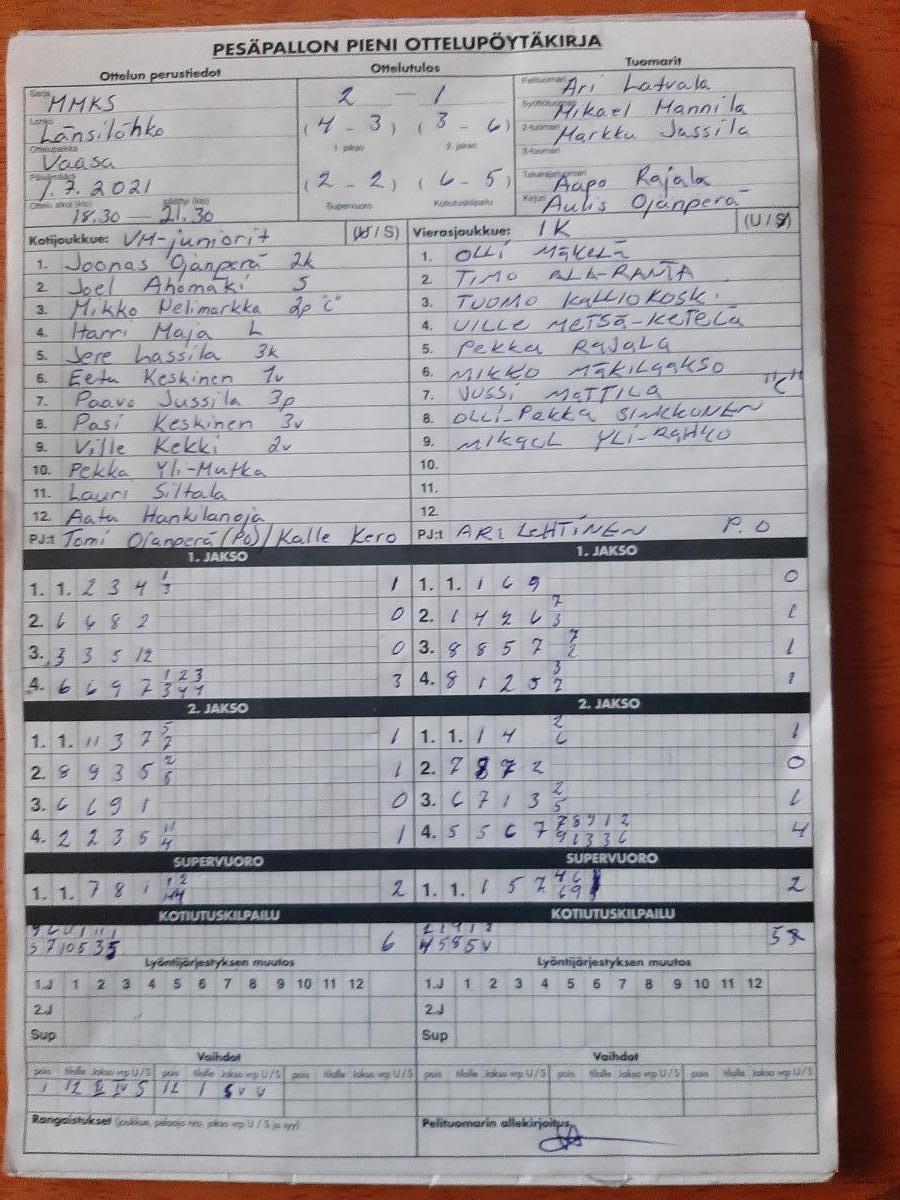 PESÄPALLON PIENI OTTELUPÖYTÄKIRJA
Ottelun perustiedot Ottelutulos Tuomarit
Sarja MMKS 2 — 1 Pelituomari Ari Latvala
Lohko Länsilohko (4 - 3) (3 - 6) Syöttötuomari Mikael Mannila
1. jakso 2. jakso 2-tuomari Markku Jussila
Ottelupaikka Vaasa 3-tuomari
Päivämäärä 1.7.2021 (2 - 2) (6 - 5) Takarajatuomari Aapo Rajala
Ottelu alkoi (klo) 18.30 — päättyi (klo) 21.30 Supervuoro Kotiutuskilpailu Kirjuri Aulis Ojanperä
Kotijoukkue: VM-juniorit (U / S) Vierasjoukkue: IK (U / S)
1. Joonas Ojanperä 2k 1. OLLI MÄKELÄ
2. Joel Ahomäki S 2. TIMO ALA-RANTA
3. Mikko Nelimarkka 2p "C" 3. TUOMO KALLIOKOSKI
4. Harri Maja L 4. VILLE METSÄ-KETELÄ
5. Jere Lassila 3k 5. PEKKA RAJALA
6. Eetu Keskinen 1v 6. MIKKO MÄKILAAKSO
7. Paavo Jussila 3p 7. JUSSI MATTILA "C"
8. Pasi Keskinen 3v 8. OLLI-PEKKA SINKKONEN
9. Ville Kekki 2v 9. MIKAEL YLI-RAHKO
10. Pekka Yli-Mutka 10.
11. Lauri Siltala 11.
12. Aatu Hankilanoja 12.
PJ:t Tomi Ojanperä (Po) / Kalle Kero PJ:t ARI LEHTINEN P.O
1. JAKSO 1. JAKSO
1. 1. 2 3 4 1/3 1 1. 1. 1 6 9 0
2. 6 6 8 2 0 2. 1 4 2 6 7/3 1
3. 3 3 5 12 0 3. 8 8 5 7 7/2 1
4. 6 6 9 7 1 2 3 3 4. 8 1 2 5 3/2 1
2. JAKSO 2. JAKSO
1. 1. 11 3 7 5/7 1 1. 1. 1 4 2/6 1
2. 8 9 3 5 2/5 1 2. 7 8 7 2 0
3. 6 6 9 1 0 3. 6 7 1 3 2/5 1
4. 2 2 3 5 11/4 1 4. 5 5 6 7 7 8 9 1 2 / 9 1 3 3 6 4
SUPERVUORO SUPERVUORO
1. 1. 7 8 1 1 2 2 1. 1. 1 5 7 4 6 / 6 9 2
KOTIUTUSKILPAILU KOTIUTUSKILPAILU
5 7 10 5 3 5 6 4 5 8 5 V 5
Lyöntijärjestyksen muutos Lyöntijärjestyksen muutos
1.J 1 2 3 4 5 6 7 8 9 10 11 12 1.J 1 2 3 4 5 6 7 8 9 10 11 12
2.J 2.J
Sup Sup
Vaihdot Vaihdot
pois tilalle Jakso vrp U/S pois tilalle Jakso vrp U/S pois tilalle Jakso vrp U/S pois tilalle Jakso vrp U/S pois tilalle Jakso vrp U/S pois tilalle Jakso vrp U/S
1 12 II IV S 12 1 S V V
Rangaistukset (joukkue, pelaaja nro, jakso vrp U / S ja syy) Pelituomarin allekirjoitus